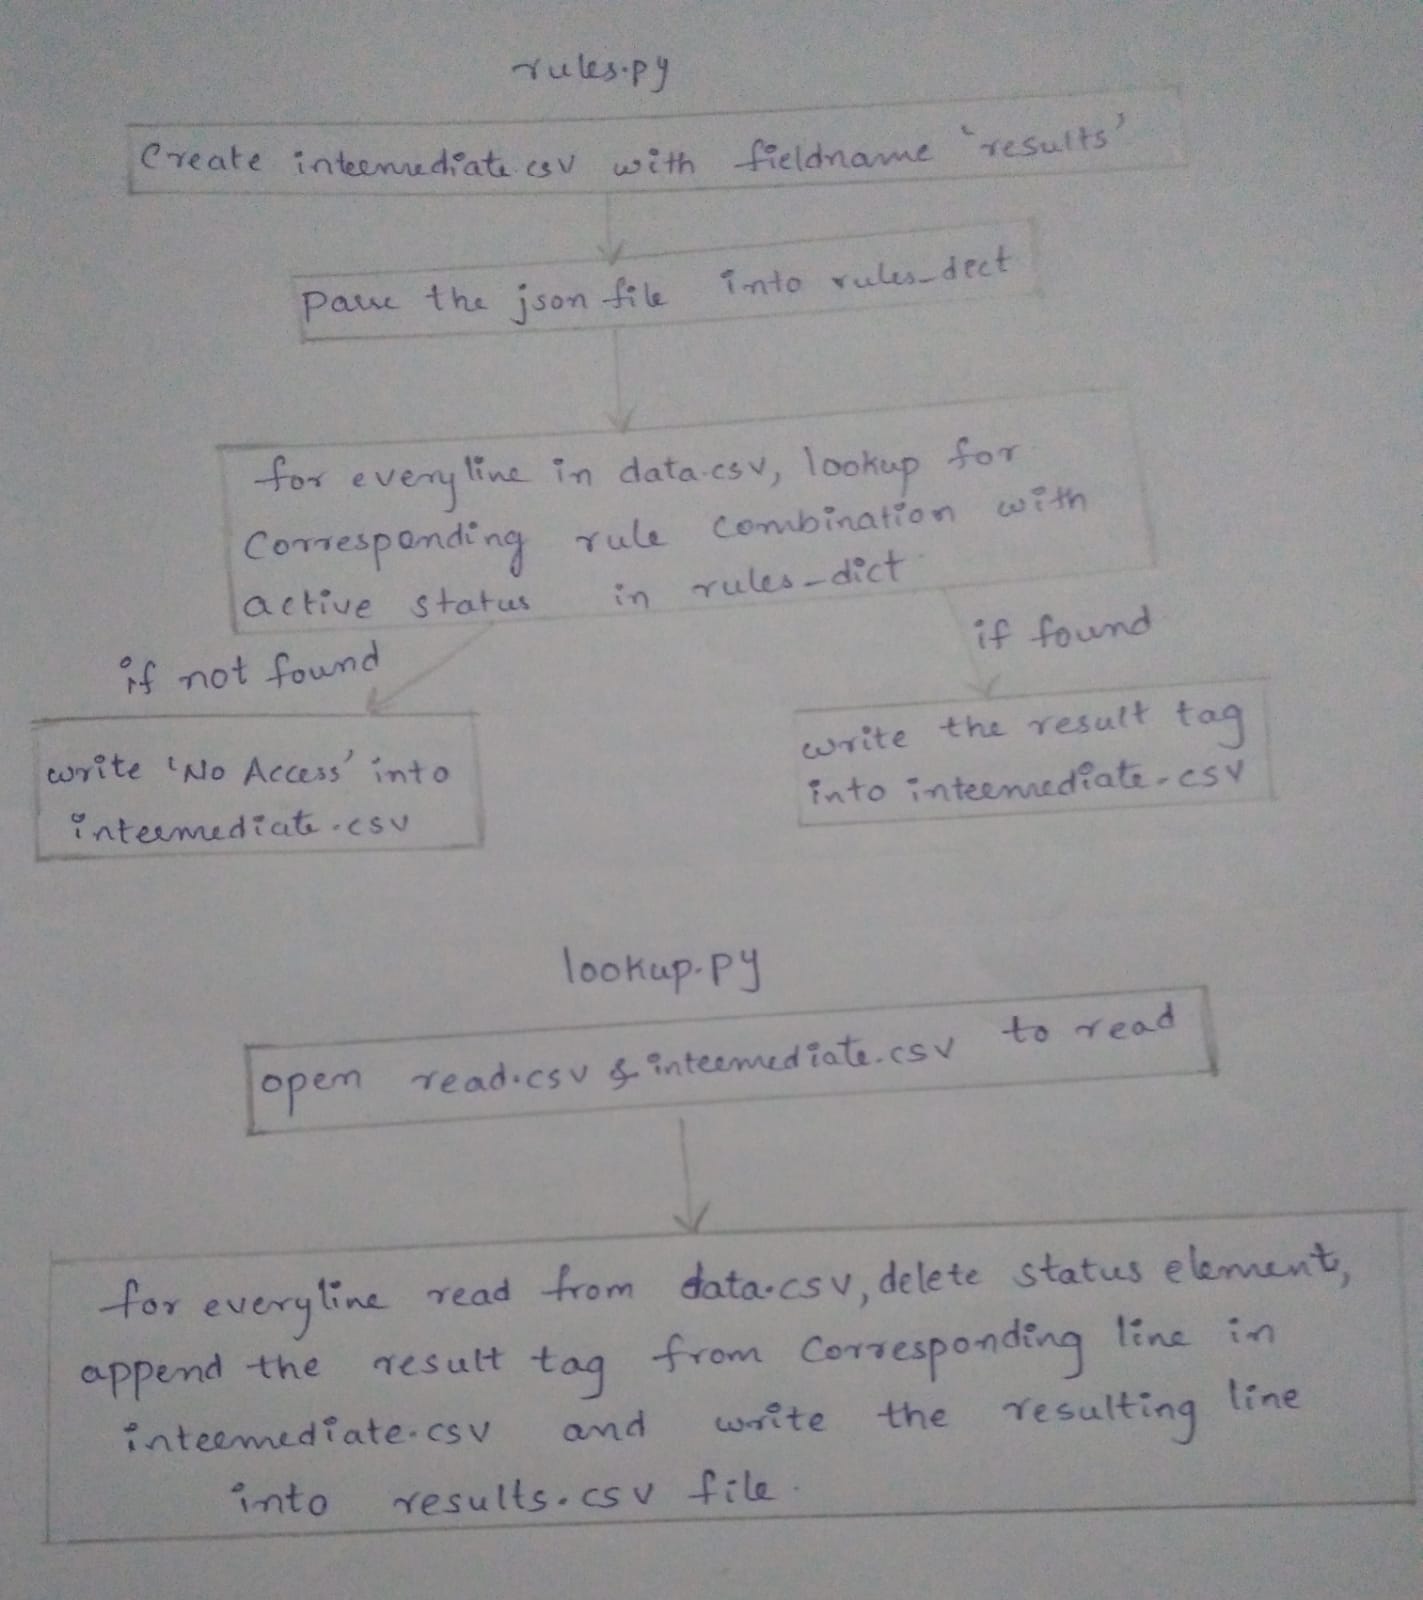 rules.py
Create intermediate.csv with fieldname 'results'
parse the json file into rules_dict
for every line in data.csv, lookup for
corresponding rule combination with
active status in rules_dict
if not found
if found
write 'No Access' into
intermediate.csv
write the result tag
into intermediate.csv
lookup.py
open read.csv & intermediate.csv to read
for every line read from data.csv, delete status element,
append the result tag from corresponding line in
intermediate.csv and write the resulting line
into results.csv file.